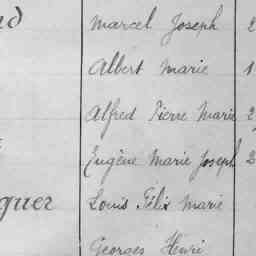 nd Marcel Joseph 2
Albert Marie 1
Alfred Pierre Marie 2
Eugène Marie Joseph 2
guer Louis Félix Marie
Georges Henri